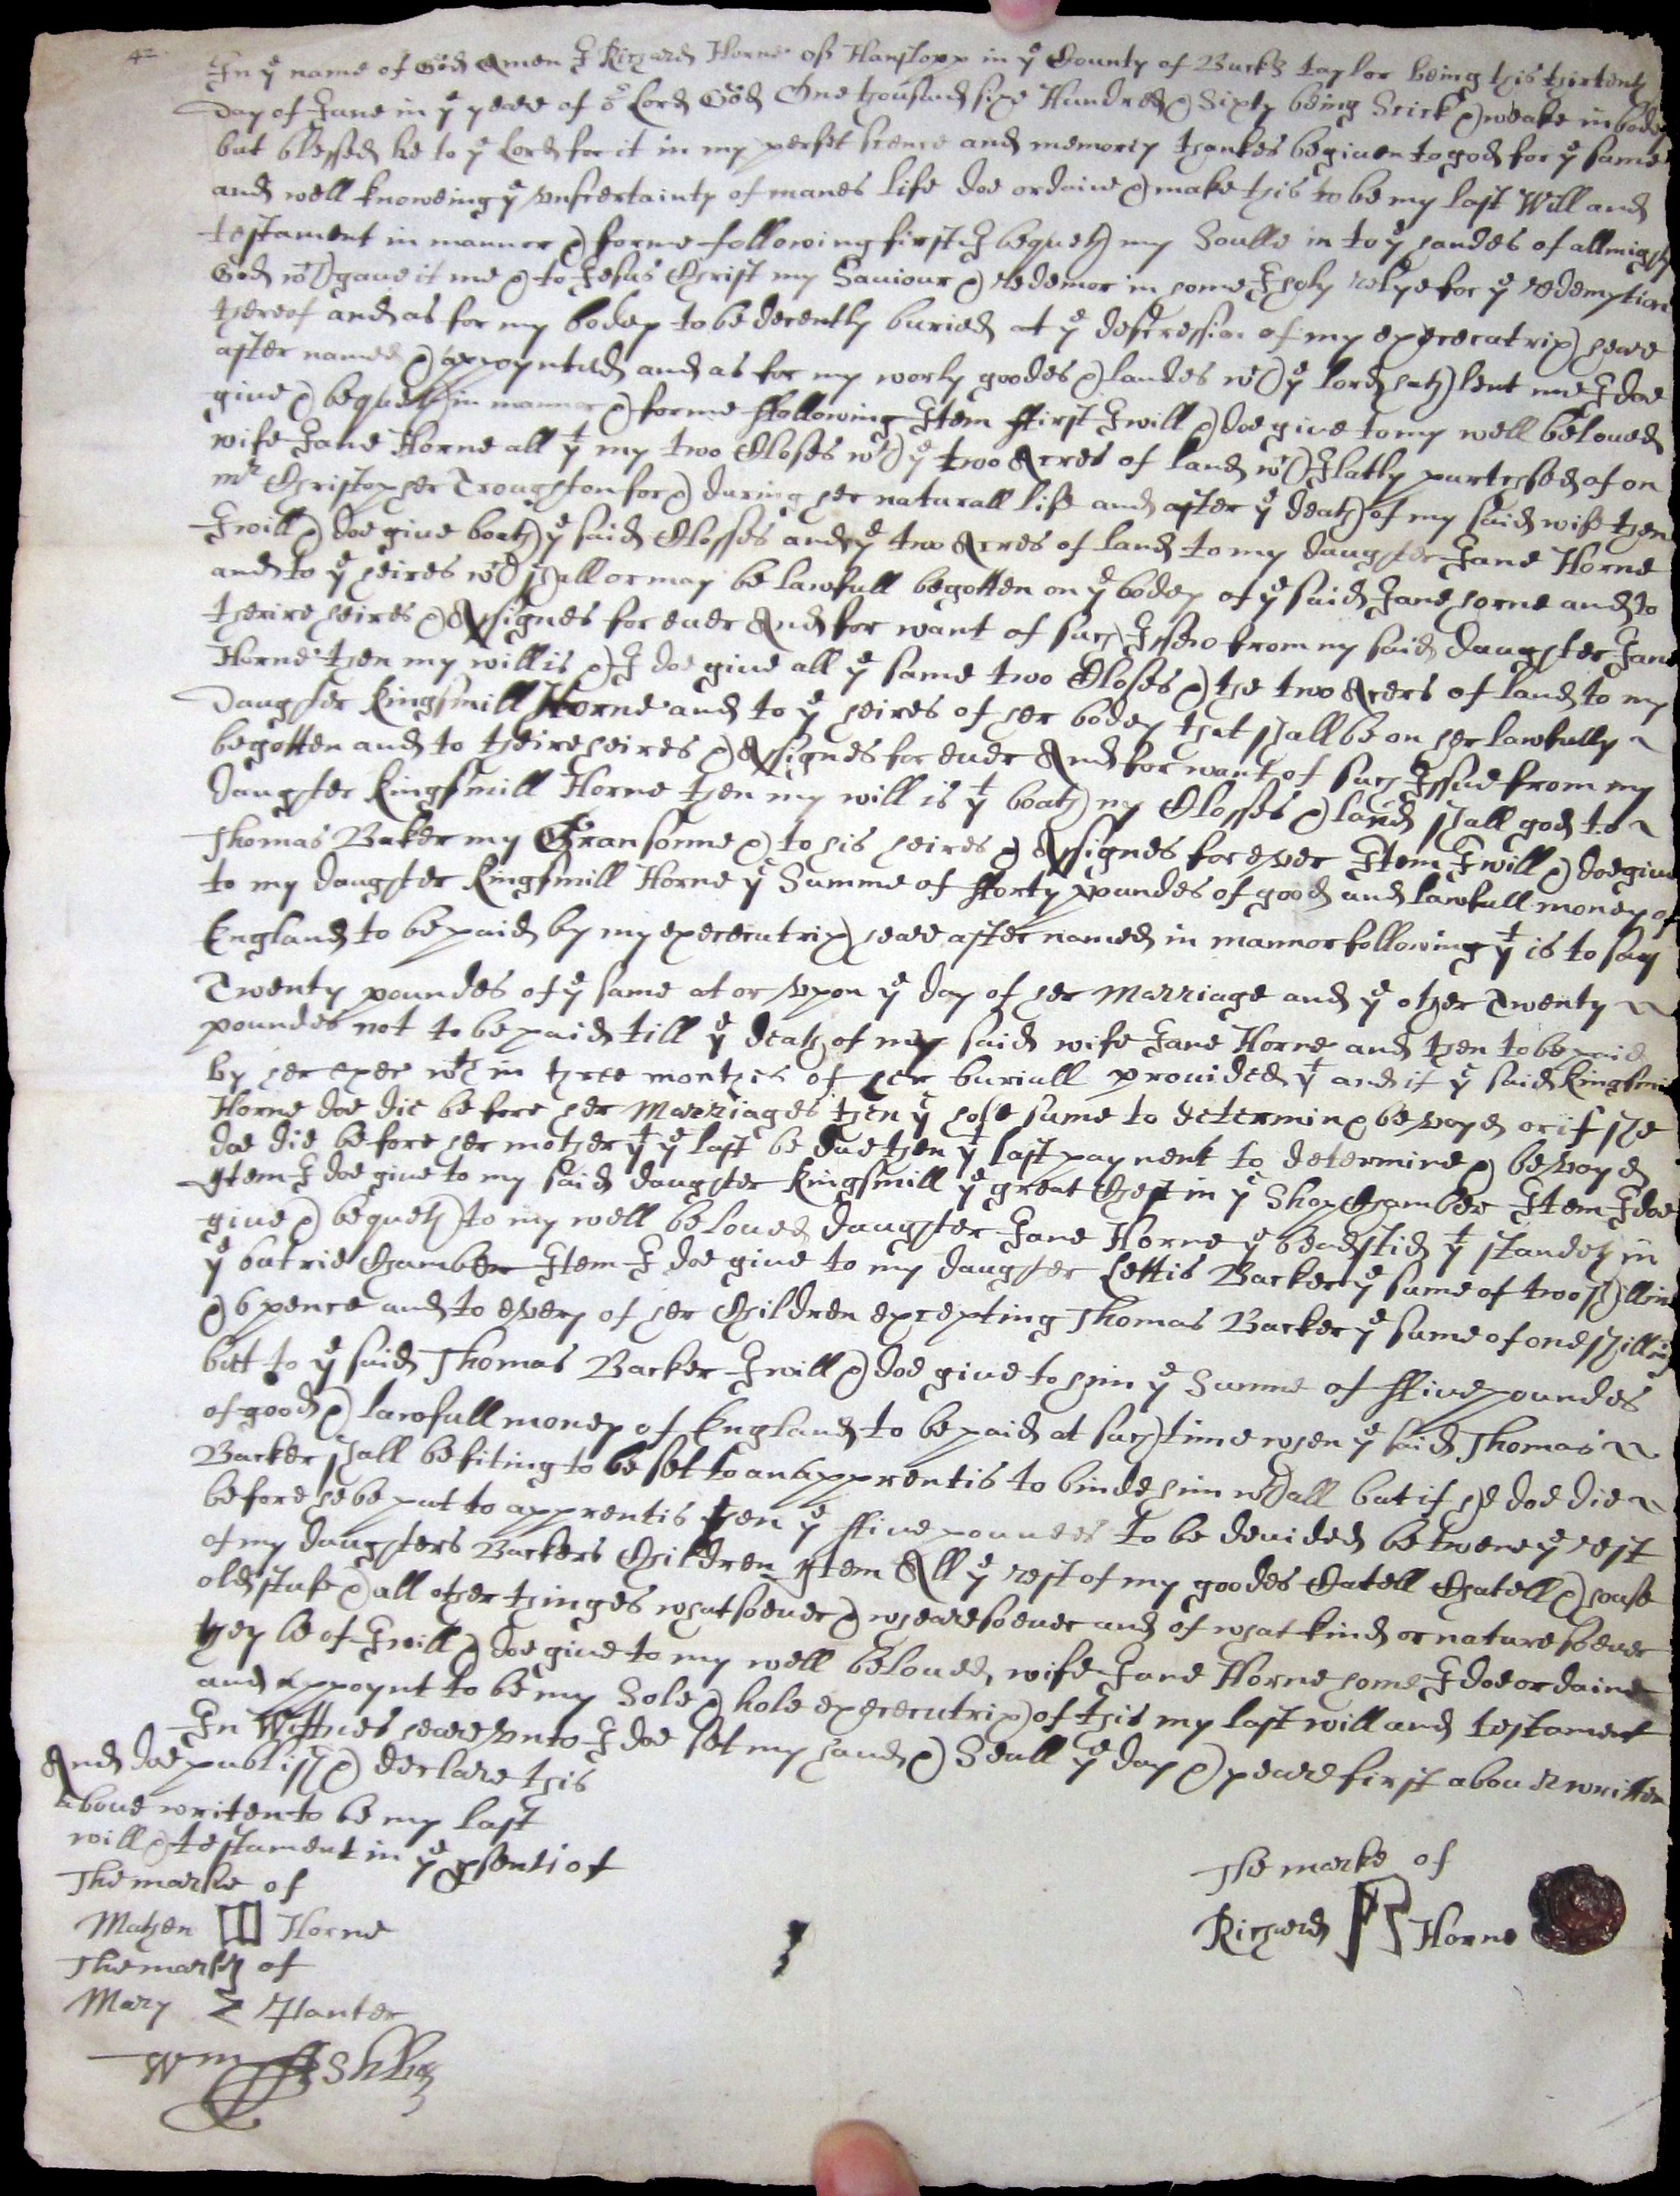 42
In ye name of God Amen I Richard Horne of Hanslopp in ye County of Bucks taylor being this thirtenth
day of June in ye yeare of or Lord God One thousand sixe Hundred & Sixty being Scick & weake in bodey
but blessed be to ye Lord for it in my perfet scence and memorey thankes be given to god for ye same
and well knoweing ye vnscertainty of manes life doe ordaine & make this to be my last Will and
testament in manner & forme following first I bequeth my Soulle in to ye handes of allmighty
God wch gave it me & to Jesus Christ my Saviour & redemor in home I holy relye for ye redemption
thereof and as for my bodey to be decently buried at ye descression of my exececutrix heare
after named & appoynted and as for my worly goodes & landes wch ye lord hath lent me I doe
give & bequeth in manner & forme ffollowing Item ffirst I will & doe give to my well beloved
wife Jane Horne all yt my two Closes wth ye two Acres of land wch I latly purtchsed of on
mr Christopher Troughton for & during her naturall life and after ye death of my said wife then
I will & doe give boath ye said Closses and ye two Acres of land to my daughter Jane Horne
and to ye heires wch shall or may be lawfull begotten on ye bodey of ye said Jane horne and to
theire heires & Assignes for ever And for want of such Issew from my said daughter Jane
Horne then my will is & I doe give all ye same two Closes & the two Acers of land to my
Daughter Kingsmill Horne and to ye heires of her bodey that shall be on her lawfully
begotten and to theire heires & Assignes for ever And for want of such Issue from my
daughter Kingsmill Horne then my will is yt boath my Closses & land shall goe to
Thomas Baker my Gransonne & to his heires & Assignes for ever Item I will & doe give
to my daughter Kingsmill Horne ye Summe of fforty poundes of good and lawfull money of
England to be paid by my exececutrix heare after named in mannor following yt is to say
Twenty poundes of ye same at or vpon ye day of her Marriage and ye other Twenty
poundes not to be paid till ye death of my said wife Jane Horne and then to be paid
by her exec wth in three monthes of her buriall provided yt and if ye said Kingsmill
Horne doe die before her Marriages then ye hole sume to determin & be voyd or if she
doe die before her mother yt ye last be due then yt last payment to determine & be voyd
Item I doe give to my said daughter Kingsmill ye great Chest in ye Shop Chamber Item I doe
give & bequeth to my well beloved daughter Jane Horne ye beadstid yt standeth in
ye butrie Chamber Item I doe give to my daughter Lettis Backer ye sume of two shilling
& 6 pence and to every of her Children excepting Thomas Backer ye sume of one shilling
butt to ye said Thomas Backer I will & doe give to him ye Summe of ffive poundes
of good & lawfull money of England to be paid at such time when ye said Thomas
Backer shall be fiting to be set to an Apprentis to binde him wth all but if he doe die
before he be put to apprentis then ye ffive poundes to be devided betwene ye rest
of my daughters Backers Children Item All ye rest of my goodes Catell Chatell & house
old stufe & all other thinges whatsoever & whearesoever and of what kind or nature soever
they be of I will & doe give to my well beloved wife Jane Horne home I doe ordaine
and appoynt to be my Sole & hole exececutrix of this my last will and testament
In Wittnes heare vnto I doe set my hand & Seall ye day & yeare first above written
And doe publish & declare this
above writen to be my last
will & testament in ye psents of
The marke of
Mathen Horne
The marke of
Mary Panter
Wm Ashby
The marke of
Richard Horne